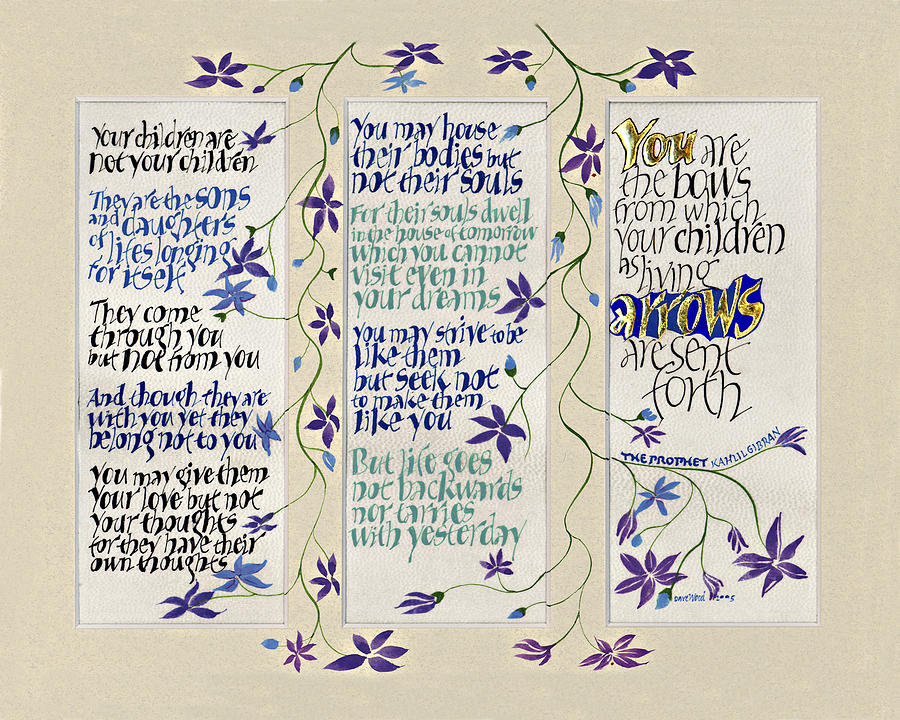 Your children are
not your children
They are the sons
and daughters
of lifes longing
for itself
They come
through you
but not from you
And though they are
with you yet they
belong not to you
You may give them
your love but not
your thoughts
for they have their
own thoughts
You may house
their bodies but
not their souls
For their souls dwell
in the house of tomorrow
which you cannot
visit even in
your dreams
you may strive to be
like them
but seek not
to make them
like you
But life goes
not backwards
nor tarries
with yesterday
You are
the bows
from which
your children
as living
arrows
are sent
forth
THE PROPHET KAHLIL GIBRAN
Dave Wood 2005